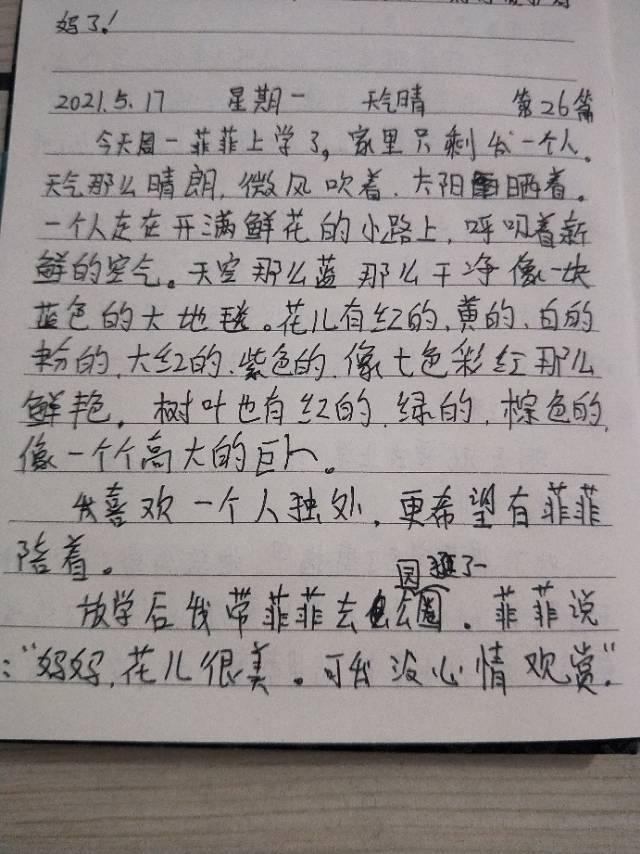 妈了!
2021.5.17 星期一 天气晴 第26篇
今天周一菲菲上学了,家里只剩我一个人。
天气那么晴朗,微风吹着、太阳晒着。
一个人走在开满鲜花的小路上,呼吸着新
鲜的空气。天空那么蓝那么干净像一块
蓝色的大地毯。花儿有红的、黄的、白的
粉的、大红的、紫色的、像七色彩红那么
鲜艳。树叶也有红的、绿的、棕色的,
像一个个高大的巨人。
我喜欢一个人独处,更希望有菲菲
陪着。
放学后我带菲菲去公园。菲菲说
:"妈妈,花儿很美。可我没心情观赏".